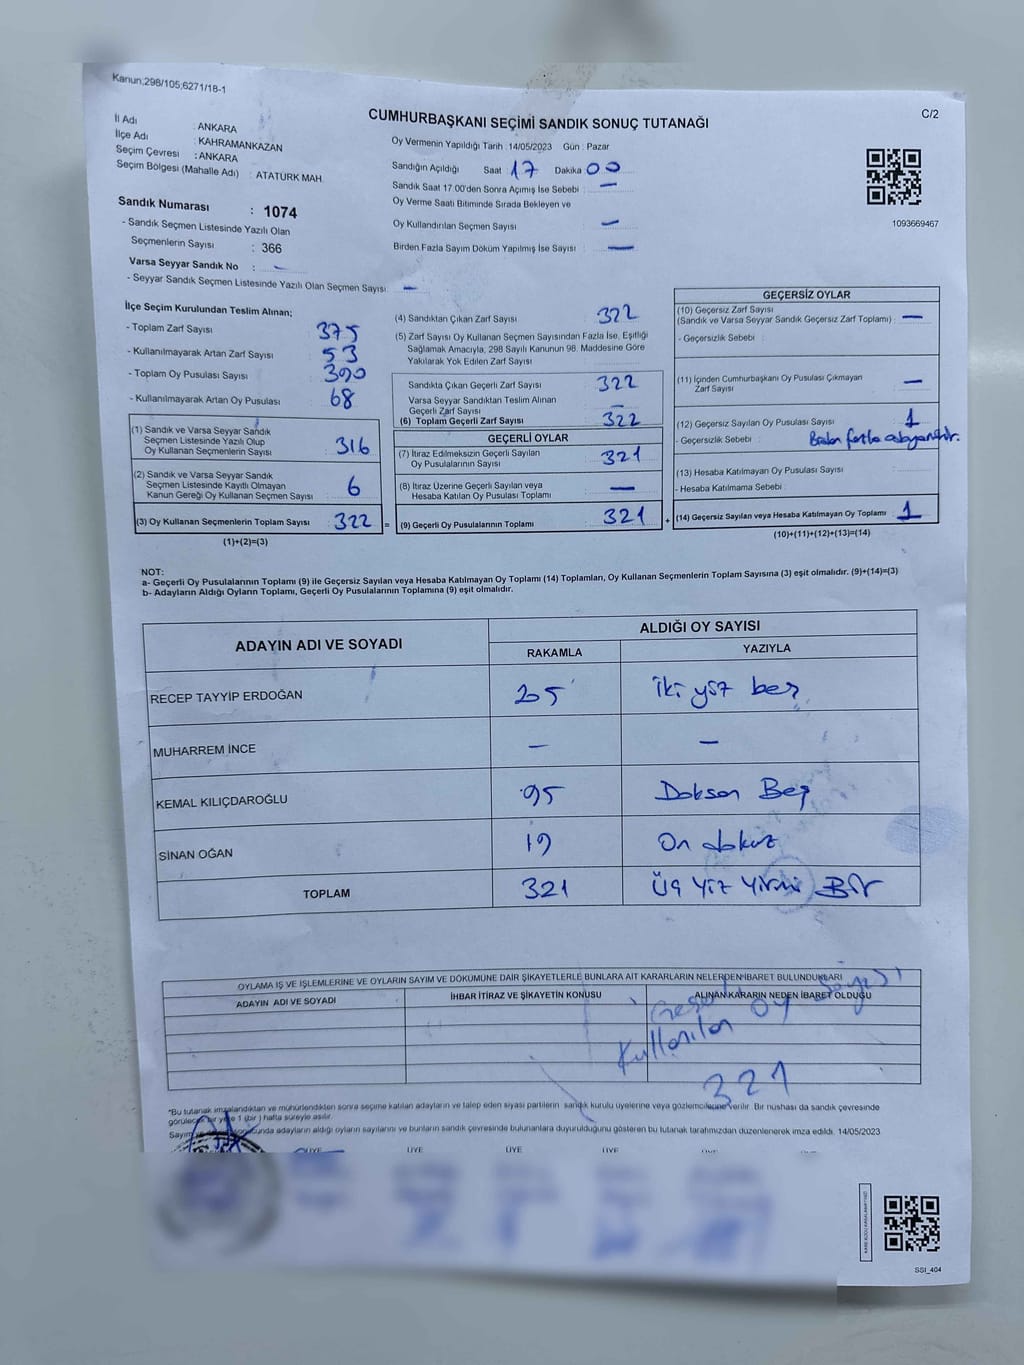 Kanun;298/105,6271/18-1
C/2
CUMHURBAŞKANI SEÇİMİ SANDIK SONUÇ TUTANAĞI
İl Adı : ANKARA
İlçe Adı : KAHRAMANKAZAN
Seçim Çevresi : ANKARA
Seçim Bölgesi (Mahalle Adı) : ATATÜRK MAH.
Sandık Numarası : 1074
- Sandık Seçmen Listesinde Yazılı Olan
Seçmenlerin Sayısı : 366
Varsa Seyyar Sandık No : –
- Seyyar Sandık Seçmen Listesinde Yazılı Olan Seçmen Sayısı: –
Oy Vermenin Yapıldığı Tarih : 14/05/2023 Gün : Pazar
Sandığın Açıldığı Saat 17 Dakika 00
Sandık Saat 17.00'den Sonra Açımış İse Sebebi : –
Oy Verme Saati Bitiminde Sırada Bekleyen ve
Oy Kullandırılan Seçmen Sayısı : –
Birden Fazla Sayım Döküm Yapılmış İse Sayısı : –
1093669467
İlçe Seçim Kurulundan Teslim Alınan;
- Toplam Zarf Sayısı : 375
- Kullanılmayarak Artan Zarf Sayısı : 53
- Toplam Oy Pusulası Sayısı : 390
- Kullanılmayarak Artan Oy Pusulası : 68
(1) Sandık ve Varsa Seyyar Sandık
Seçmen Listesinde Yazılı Olup
Oy Kullanan Seçmenlerin Sayısı : 316
(2) Sandık ve Varsa Seyyar Sandık
Seçmen Listesinde Kayıtlı Olmayan
Kanun Gereği Oy Kullanan Seçmen Sayısı : 6
(3) Oy Kullanan Seçmenlerin Toplam Sayısı : 322 =
(1)+(2)=(3)
(4) Sandıktan Çıkan Zarf Sayısı : 322
(5) Zarf Sayısı Oy Kullanan Seçmen Sayısından Fazla İse, Eşitliği
Sağlamak Amacıyla, 298 Sayılı Kanunun 98. Maddesine Göre
Yakılarak Yok Edilen Zarf Sayısı :
Sandıkta Çıkan Geçerli Zarf Sayısı : 322
Varsa Seyyar Sandıktan Teslim Alınan
Geçerli Zarf Sayısı : –
(6) Toplam Geçerli Zarf Sayısı : 322
GEÇERLİ OYLAR
(7) İtiraz Edilmeksizin Geçerli Sayılan
Oy Pusulalarının Sayısı : 321
(8) İtiraz Üzerine Geçerli Sayılan veya
Hesaba Katılan Oy Pusulası Toplamı : –
(9) Geçerli Oy Pusulalarının Toplamı : 321 +
GEÇERSİZ OYLAR
(10) Geçersiz Zarf Sayısı
(Sandık ve Varsa Seyyar Sandık Geçersiz Zarf Toplamı) : –
- Geçersizlik Sebebi :
(11) İçinden Cumhurbaşkanı Oy Pusulası Çıkmayan
Zarf Sayısı : –
(12) Geçersiz Sayılan Oy Pusulası Sayısı : 1
- Geçersizlik Sebebi : Birden fazla
(13) Hesaba Katılmayan Oy Pusulası Sayısı :
- Hesaba Katılmama Sebebi :
(14) Geçersiz Sayılan veya Hesaba Katılmayan Oy Toplamı : 1
(10)+(11)+(12)+(13)=(14)
NOT:
a- Geçerli Oy Pusulalarının Toplamı (9) ile Geçersiz Sayılan veya Hesaba Katılmayan Oy Toplamı (14) Toplamları, Oy Kullanan Seçmenlerin Toplam Sayısına (3) eşit olmalıdır. (9)+(14)=(3)
b- Adayların Aldığı Oyların Toplamı, Geçerli Oy Pusulalarının Toplamına (9) eşit olmalıdır.
ADAYIN ADI VE SOYADI ALDIĞI OY SAYISI
RAKAMLA YAZIYLA
RECEP TAYYİP ERDOĞAN 205 iki yüz beş
MUHARREM İNCE – –
KEMAL KILIÇDAROĞLU 95 Doksan Beş
SİNAN OĞAN 19 On dokuz
TOPLAM 321 Üç Yüz Yirmi Bir
OYLAMA İŞ VE İŞLEMLERİNE VE OYLARIN SAYIM VE DÖKÜMÜNE DAİR ŞİKAYETLERLE BUNLARA AİT KARARLARIN NELERDEN İBARET BULUNDUKLARI
ADAYIN ADI VE SOYADI İHBAR İTİRAZ VE ŞİKAYETİN KONUSU ALINAN KARARIN NEDEN İBARET OLDUĞU
Oy Sayısı
Kullanılan
321
*Bu tutanak imzalandıktan ve mühürlendikten sonra seçime katılan adayların ve talep eden siyasi partilerin sandık kurulu üyelerine veya gözlemcilerine verilir. Bir nüshası da sandık çevresinde
görülecek bir yere 1 (bir) hafta süreyle asılır.
Sayım sonucunda adayların aldığı oyların sayılarını ve bunların sandık çevresinde bulunanlara duyurulduğunu gösteren bu tutanak tarafımızdan düzenlenerek imza edildi. 14/05/2023
ÜYE ÜYE ÜYE ÜYE
SSI_404